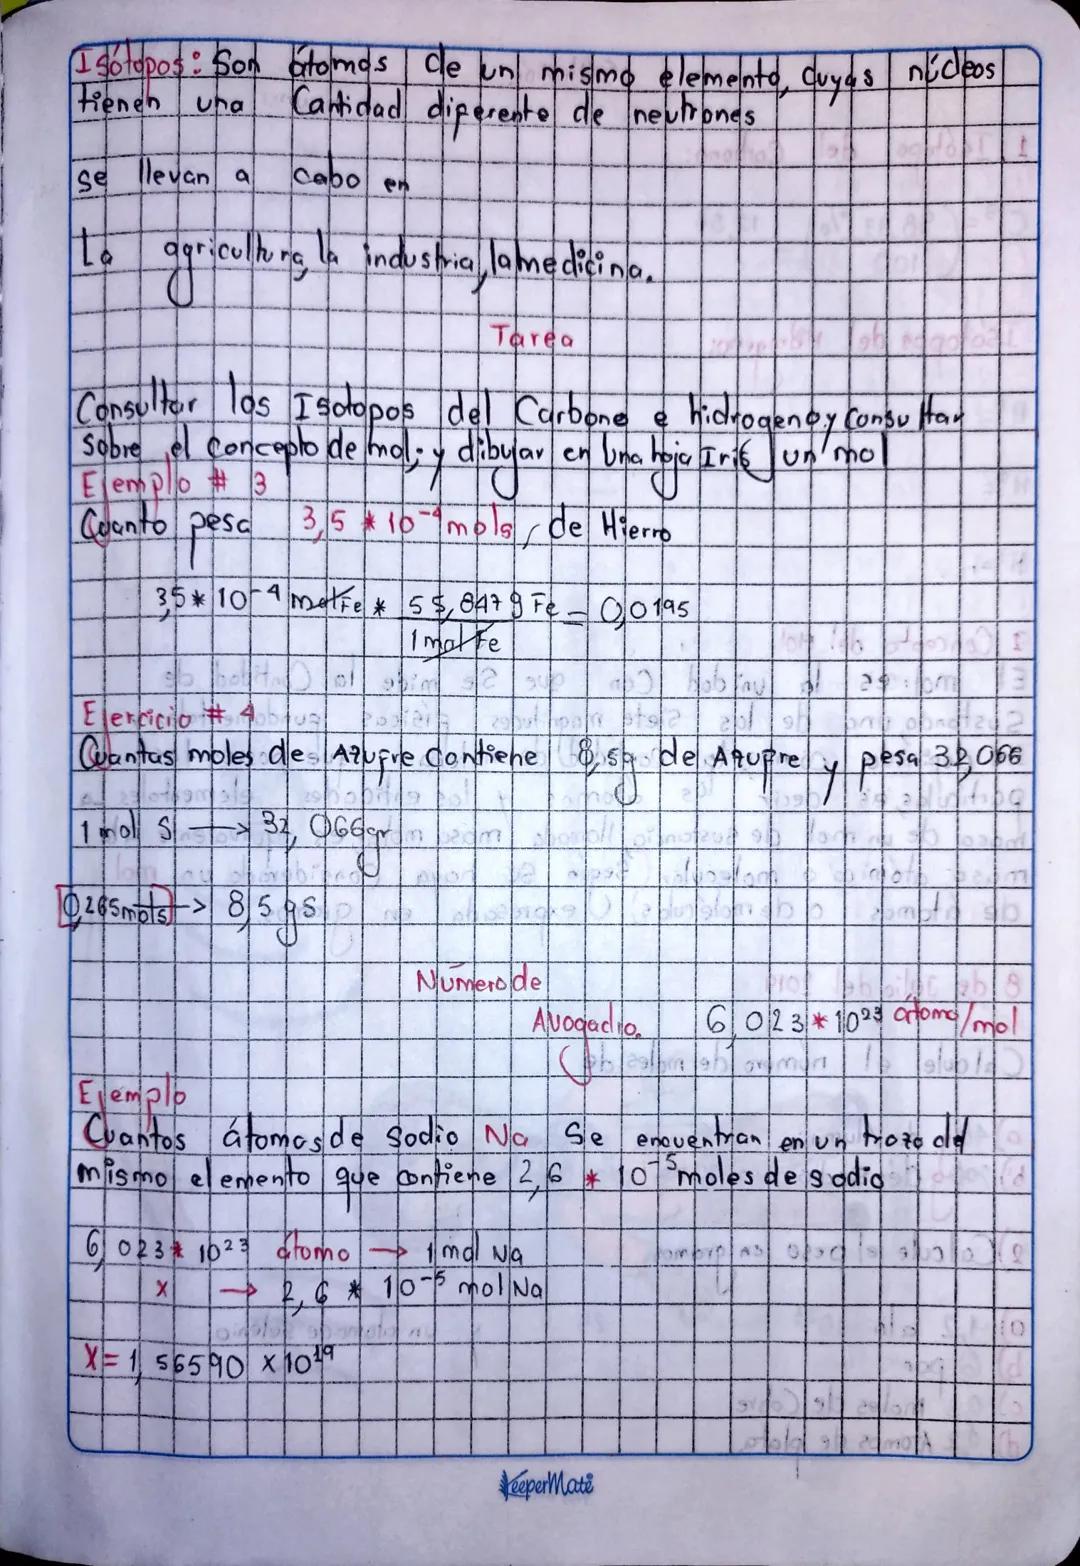 Isótopos: Son átomos de un mismo elemento, cuyas núcleos
tienen una Cantidad diferente de neutrones
se llevan a cabo en
La agricultura, la industria, la medicina.
Tarea
Consultar los Isotopos del Carbono e hidrogeno y Consultar
sobre el concepto de mol; y dibujar en Una hoja Iris un mol
Ejemplo # 3
Cuanto pesa 3,5 * 10⁻⁴ mols, de Hierro
3,5 * 10⁻⁴ mol Fe * 55,847 g Fe = 0,0195
1 mol Fe
Ejercicio # 4
Cuantas moles de Azufre Contiene 8,5g de Azufre y pesa 32,066
1 mol S → 32,066gr
0,265 mols → 8,5 gs
Número de
Avogadro. 6,023 * 10²³ átomo/mol
Ejemplo
Cuantos átomos de Sodio Na Se encuentran en un trozo del
mismo elemento que contiene 2,6 * 10⁻⁵ moles de sodio
6,023 * 10²³ átomo → 1 mol Na
x → 2,6 * 10⁻⁵ mol Na
X = 1,56590 x 10¹⁹
KeeperMate